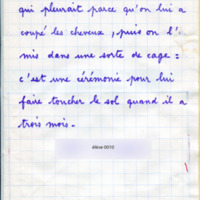 qui pleurait parce qu'on lui a
coupé les cheveux, puis on l'
mis dans une sorte de cage :
c'est une cérémonie pour lui
faire toucher le sol quand il a
trois mois.
élève 0010